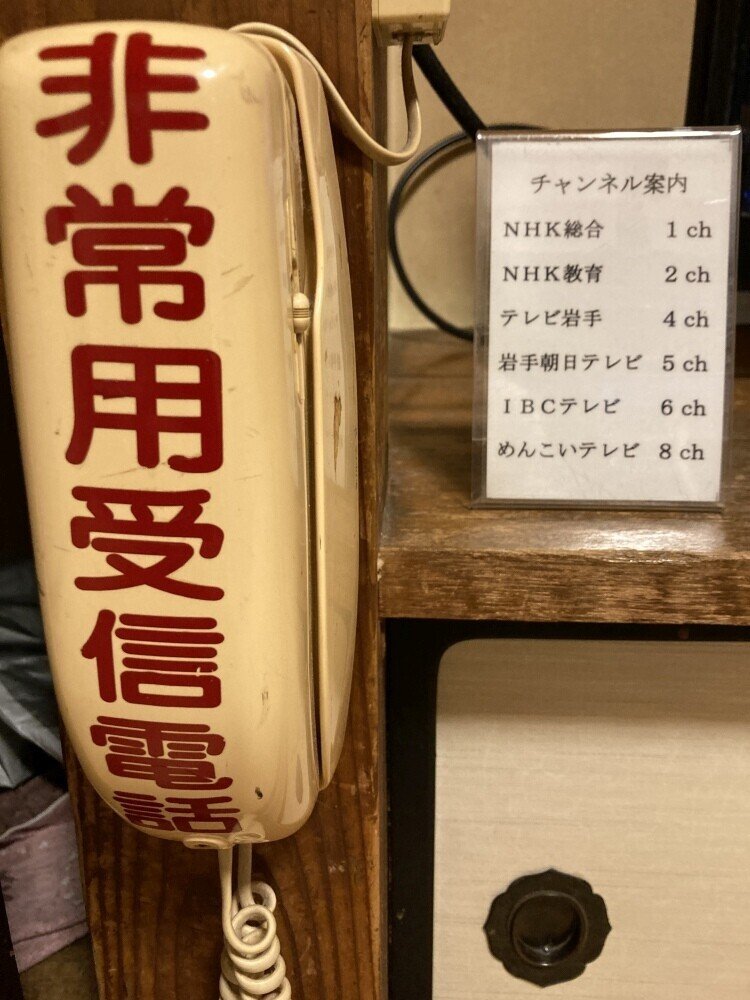 非常用受信電話
チャンネル案内
NHK総合 1 ch
NHK教育 2 ch
テレビ岩手 4 ch
岩手朝日テレビ 5 ch
IBCテレビ 6 ch
めんこいテレビ 8 ch